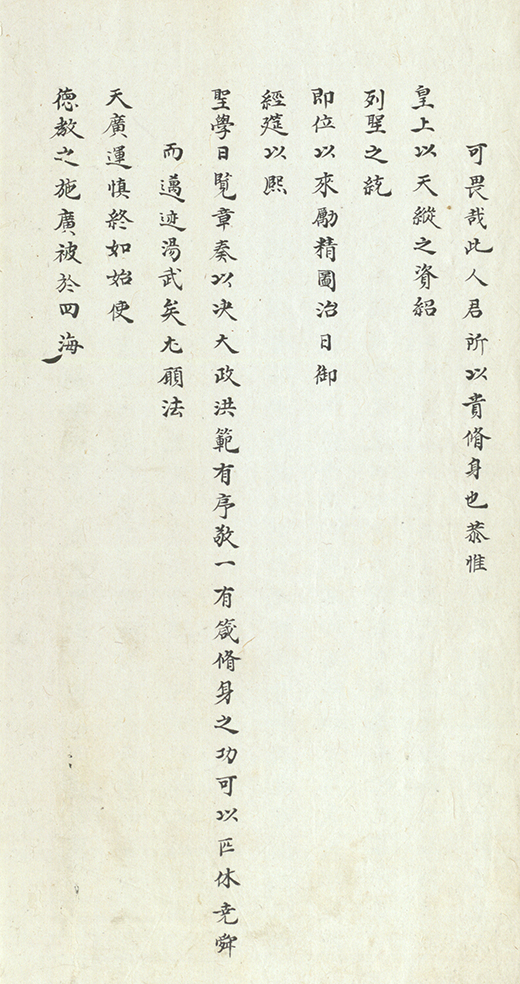 可畏哉此人君所以貴脩身也恭惟
皇上以天縱之資紹
列聖之統
即位以來勵精圖治日御
經筵以熙
聖學日覧章奏以决大政洪範有序敬一有箴脩身之功可以匹休尭舜
而邁迹湯武矣尤願法
天廣運慎終如始使
德教之施廣被於四海